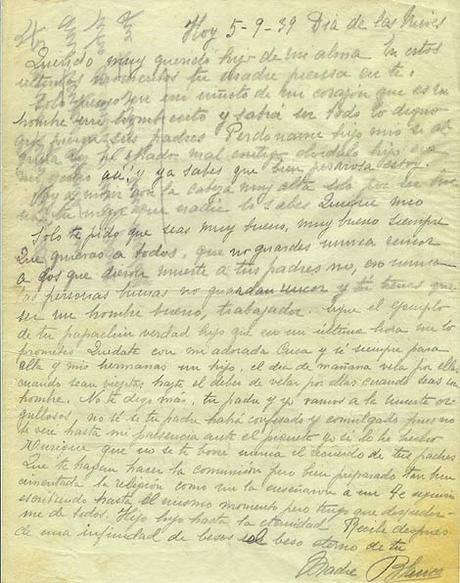 Hoy 5-9-39 Dia de las Nieves
Querido muy querido hijo de mi alma En estos
ultimos momentos tu madre piensa en ti.
Solo pienso en mi niñito de mi corazon que es un
hombre un hombrecito y sabrá ser todo lo digno
que fueron sus padres Perdoname hijo mio si al
guna vez he obrado mal contigo olvidalo hijo no
me asi, y ya sabes que bien pesarosa estoy.
Voy a morir con la cabeza muy alta solo por ser bue
na tu mejor que nadie lo sabes Quique mio
Solo te pido que seas muy bueno, muy bueno siempre
Que quieras a todos, que no guardes nunca rencor
a los que dieron muerte a tus padres no, eso nunca
las personas buenas no guardan rencor y tu tienes que
ser un hombre bueno, trabajador. Sigue el ejemplo
de tu papachin verdad hijo que en mi ultima hora me lo
prometes Quedate con mi adorada Cuca y sé siempre para
ella y mis hermanas un hijo, el dia de mañana vela por ellas
cuando sean viejitas hazte el deber de velar por ellas cuando seas un
hombre. No te digo mas, tu padre y yo vamos a la muerte or
gullosos, no sé si tu padre habrá confesado y comulgado pues no
le veré hasta mi presencia ante el piquete yo si lo he hecho
Enrique que no se te borre nunca el recuerdo de tus padres
Que te hagan hacer la comunion pero bien preparado tan bien
cimentada la religión como me la enseñaron a mi Te seguiria
escribiendo hasta el mismo momento pero tengo que despedir
me de todos. Hijo hijo hasta la eternidad Recibe despues
de una infinidad de besos el beso eterno de tu
Madre Blanca